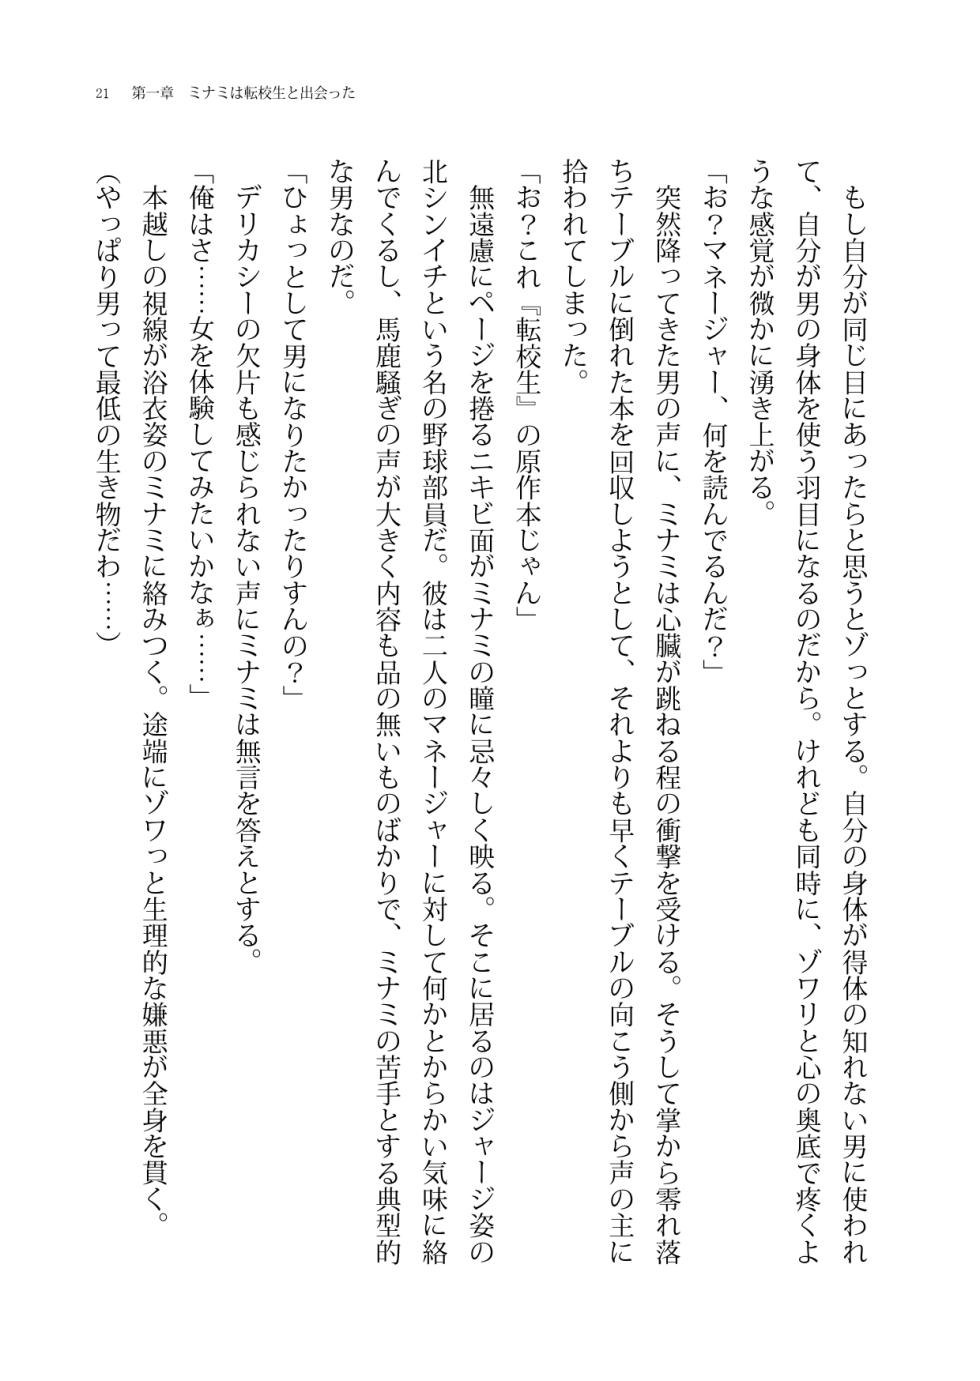 21　第一章　ミナミは転校生と出会った
　もし自分が同じ目にあったらと思うとゾっとする。自分の身体が得体の知れない男に使われ
て、自分が男の身体を使う羽目になるのだから。けれども同時に、ゾワリと心の奥底で疼くよ
うな感覚が微かに湧き上がる。
「お？マネージャー、何を読んでるんだ？」
　突然降ってきた男の声に、ミナミは心臓が跳ねる程の衝撃を受ける。そうして掌から零れ落
ちテーブルに倒れた本を回収しようとして、それよりも早くテーブルの向こう側から声の主に
拾われてしまった。
「お？これ『転校生』の原作本じゃん」
　無遠慮にページを捲るニキビ面がミナミの瞳に忌々しく映る。そこに居るのはジャージ姿の
北シンイチという名の野球部員だ。彼は二人のマネージャーに対して何かとからかい気味に絡
んでくるし、馬鹿騒ぎの声が大きく内容も品の無いものばかりで、ミナミの苦手とする典型的
な男なのだ。
「ひょっとして男になりたかったりすんの？」
　デリカシーの欠片も感じられない声にミナミは無言を答えとする。
「俺はさ……女を体験してみたいかなぁ……」
　本越しの視線が浴衣姿のミナミに絡みつく。途端にゾワっと生理的な嫌悪が全身を貫く。
（やっぱり男って最低の生き物だわ……）